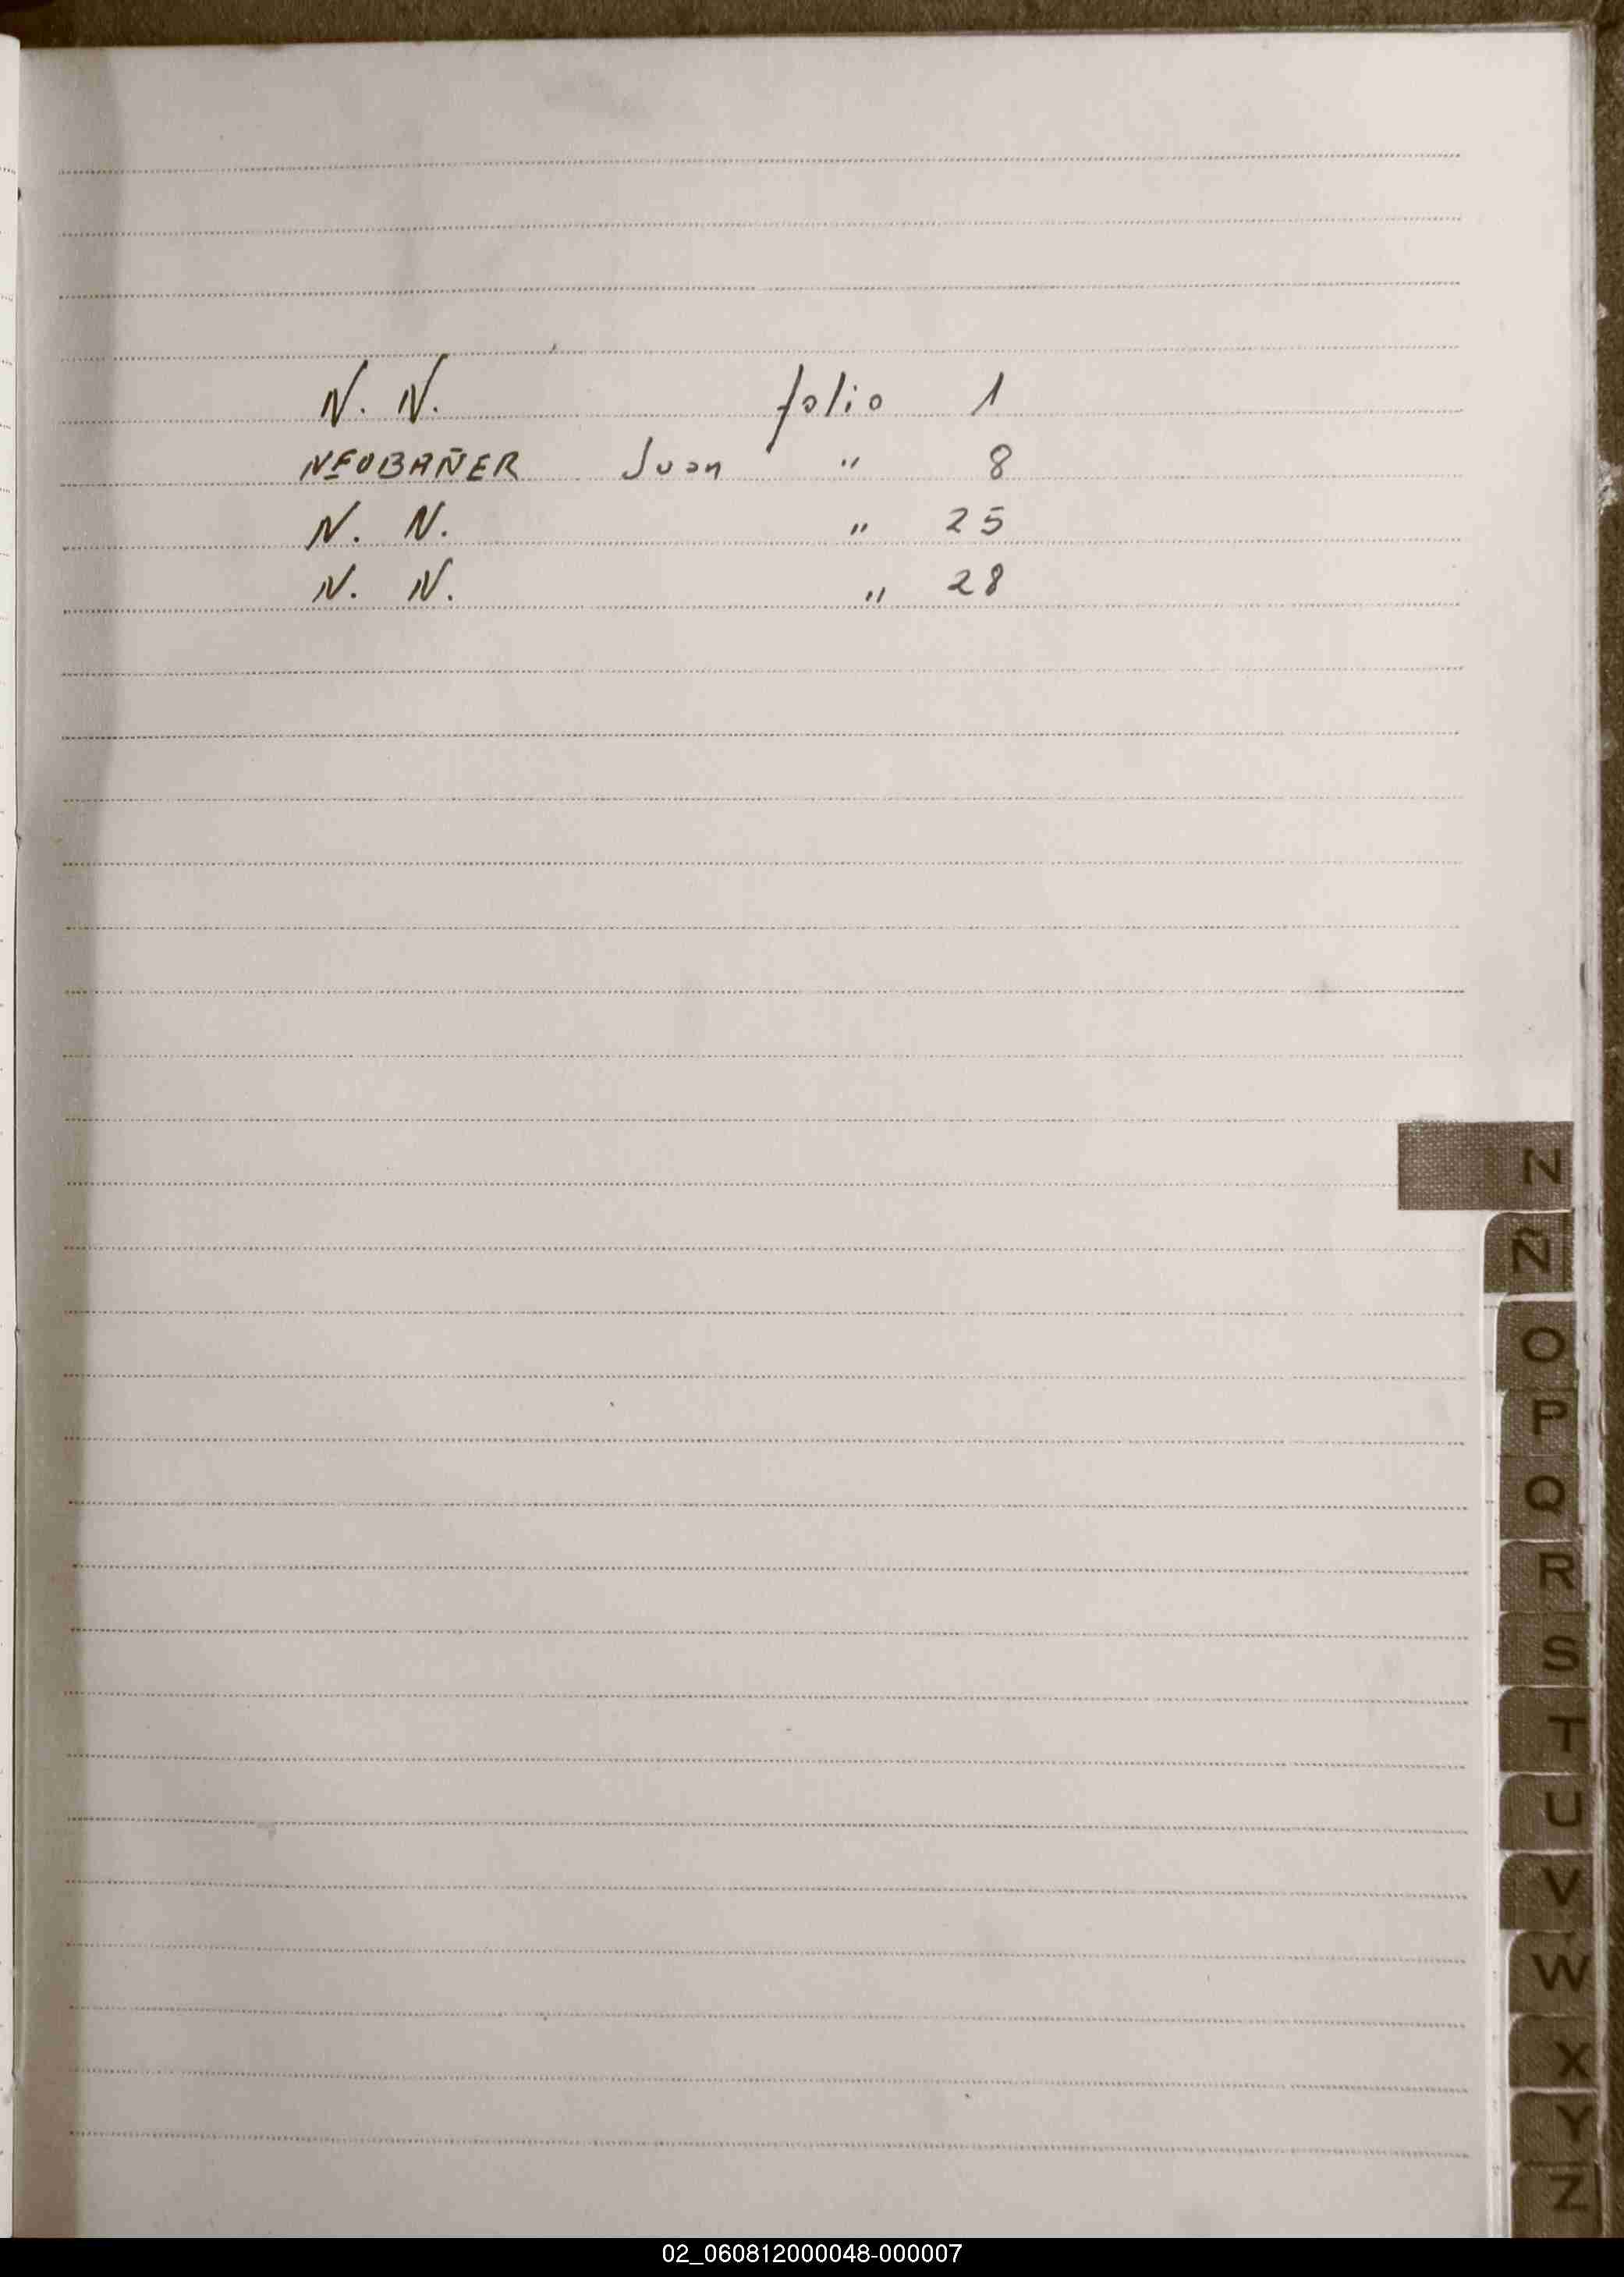 N. N. folio 1
NEOBAÑER Juan " 8
N. N. " 25
N. N. " 28
N
Ñ
O
P
Q
R
S
T
U
V
W
X
Y
Z
02_060812000048-000007